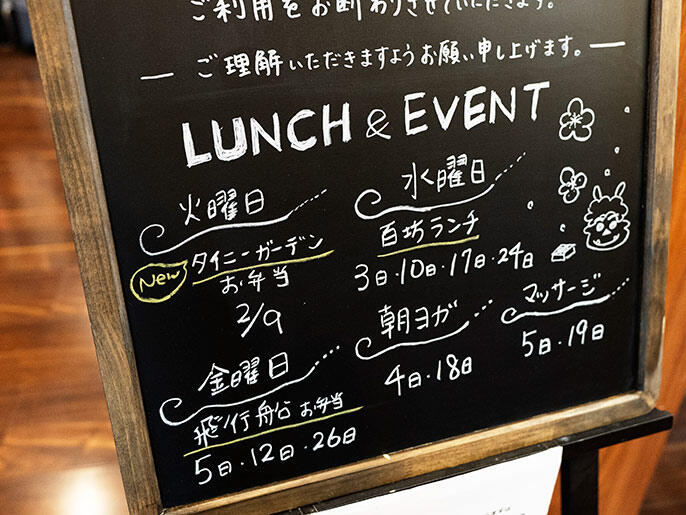 ご利用をお断わりさせていただきます。
ご理解いただきますようお願い申し上げます。
LUNCH & EVENT
火曜日
New タイニーガーデン
お弁当
2/9
水曜日
百坊ランチ
3日・10日・17日・24日
金曜日
飛行船 お弁当
5日・12日・26日
朝ヨガ
4日・18日
マッサージ
5日・19日